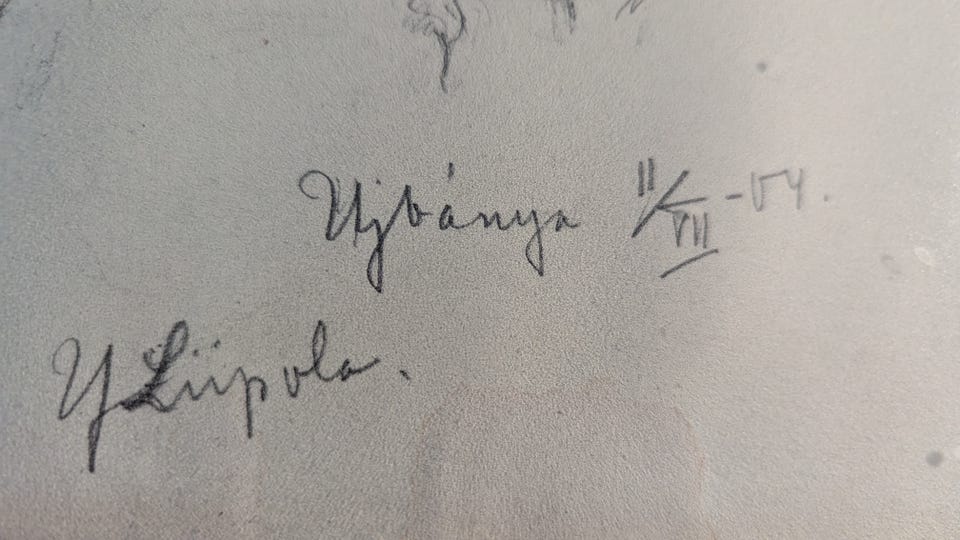 Ujbánya 11/VII - 04.
Y Liipola.